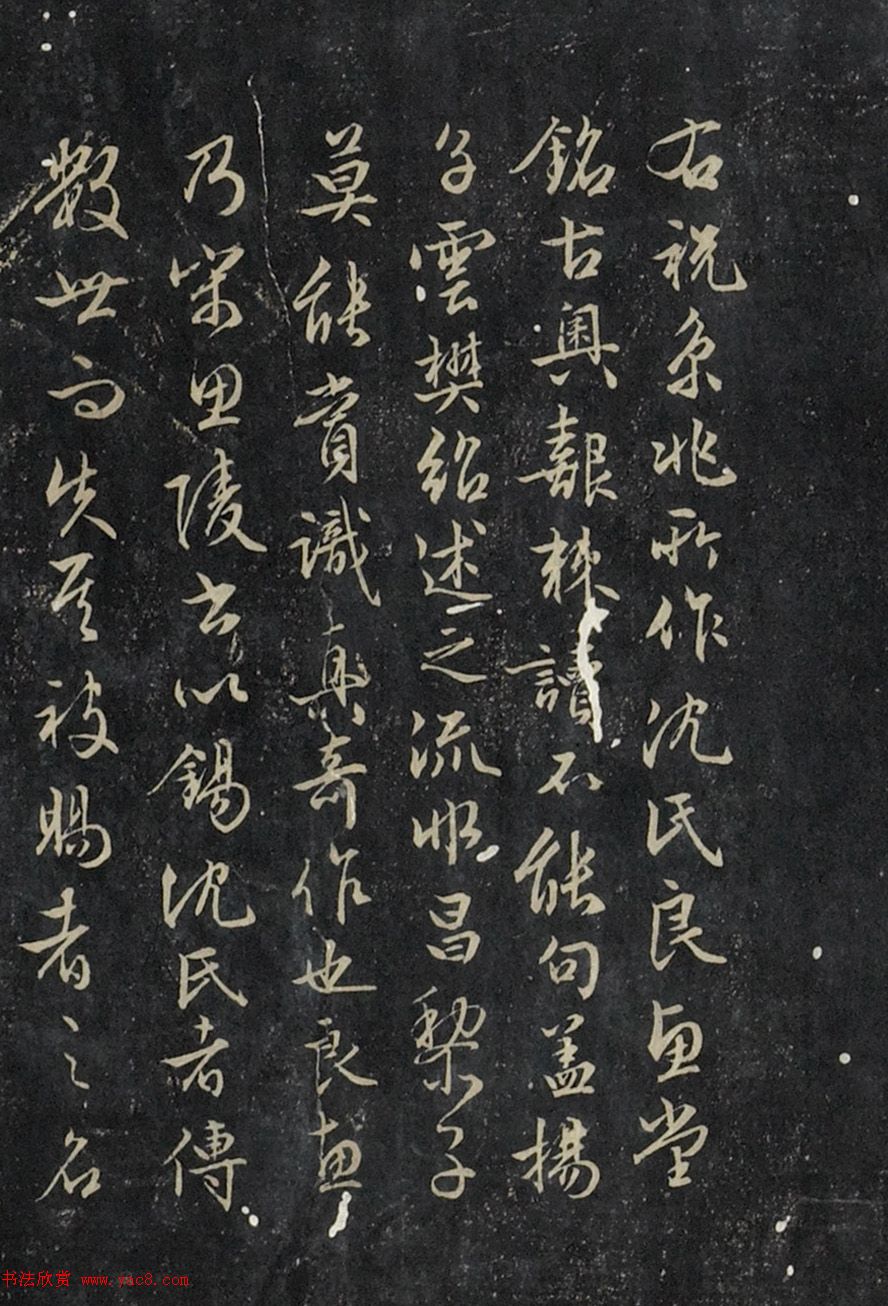 右祝京兆所作沈氏良惠堂
銘古奧艱棘讀不能句蓋揚
子雲樊紹述之流非昌黎子
莫能賞識真奇作也良惠
乃宋思陵書以錫沈氏者傳
數世而失其被賜者之名
书法欣赏 www.yac8.com